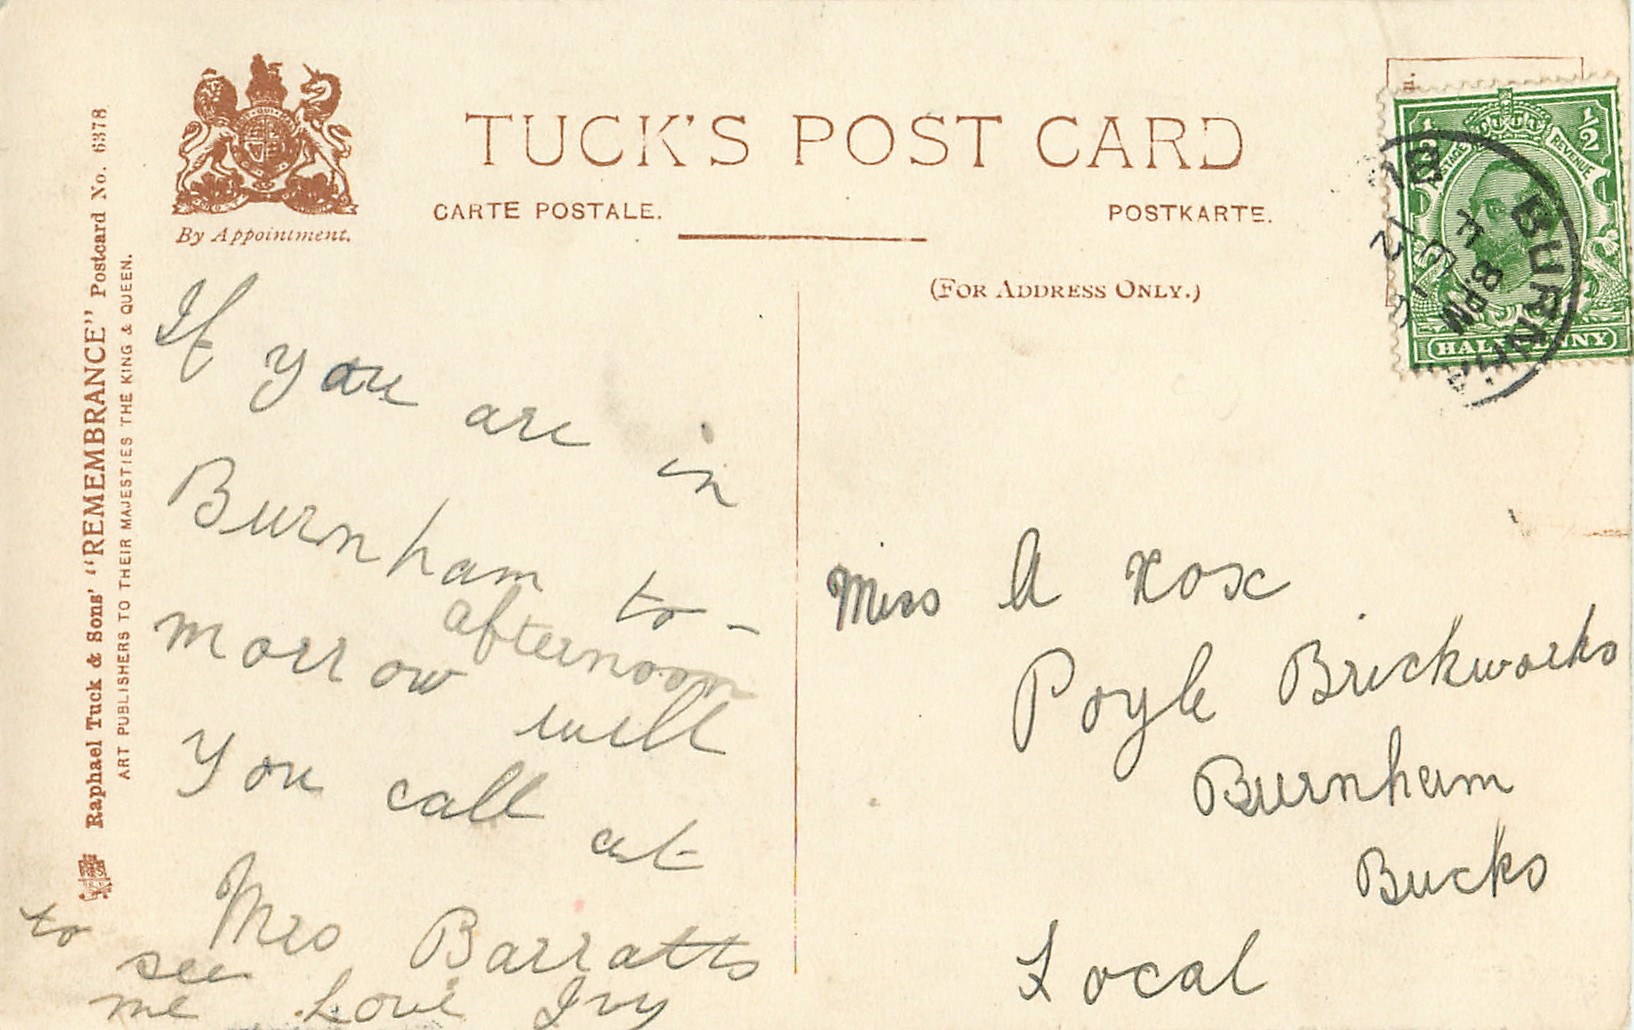 TUCK'S POST CARD
CARTE POSTALE.
POSTKARTE.
(FOR ADDRESS ONLY.)
By Appointment.
Raphael Tuck & Sons' "REMEMBRANCE" Postcard No. 6378
ART PUBLISHERS TO THEIR MAJESTIES THE KING & QUEEN.
If you are in
Burnham to-
afternoon
morrow will
you call at
Mrs Barratts
to see
me Love Ivy
Miss A
Poyle Brickworks
Burnham
Bucks
Local
POSTAGE REVENUE
1/2 1/2
HALFPENNY
8 PM
12